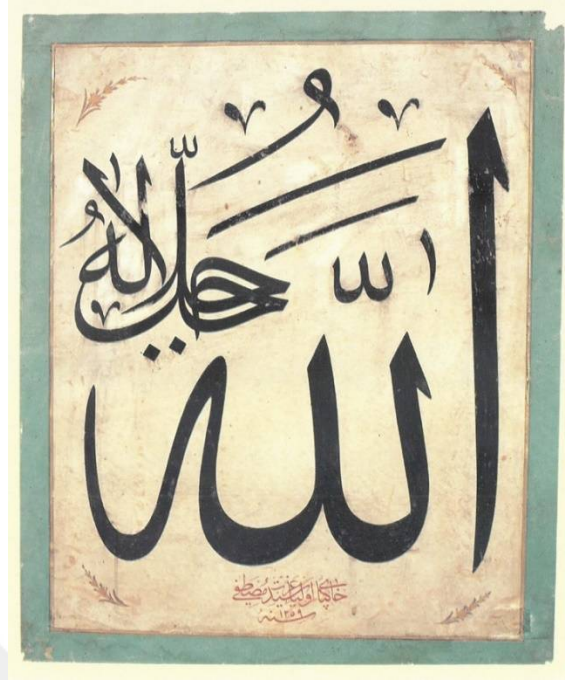 الله
جل جلاله
خاكپای اوليا سيد مصطفى
سنه ١٢٥٩